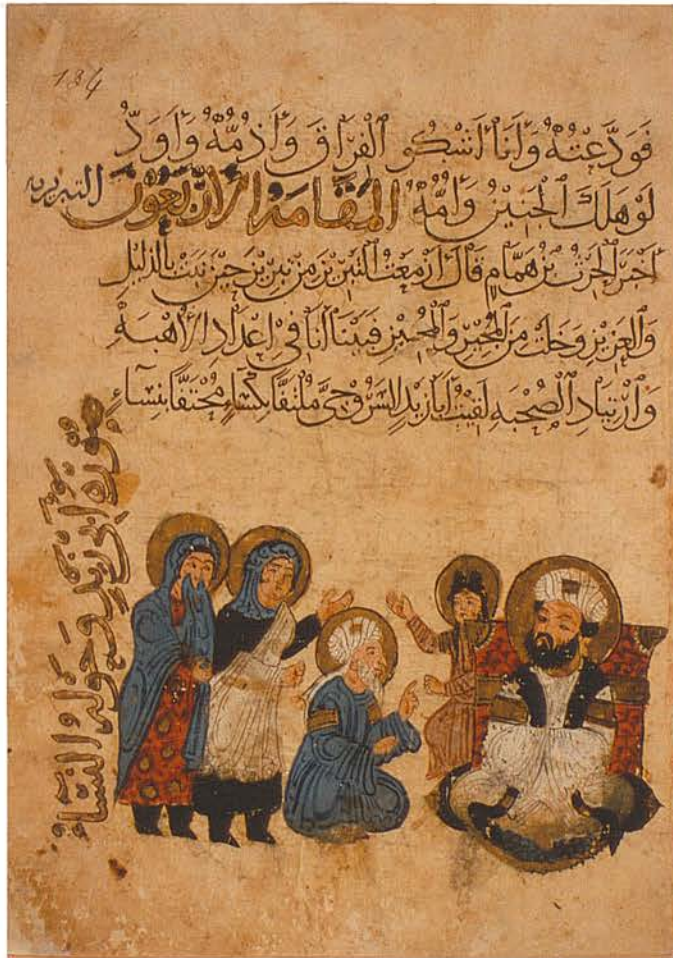 134
فَوَدَّعْتُهُ وَأَنَا أَشْكُو الْفِرَاقَ وَأَذُمُّهُ وَأَوَدُّ
لَوْ هَلَكَ الْجَنِينُ وَأُمُّهُ الْمَقَامَةُ الْأَرْبَعُونَ التبريزية
أَخْبَرَ الْحَرِثُ بْنُ هَمَّامٍ قَالَ أَزْمَعْتُ التَّبْرِيزَ مِنْ تِبْرِيزَ حِينَ نَبَتْ بِالذَّلِيلِ
وَالْعَزِيزِ وَخَلَتْ مِنَ الْمُجِيرِ وَالْمُجِيزِ فَبَيْنَا أَنَا فِي إِعْدَادِ الْأُهْبَةِ
وَارْتِيَادِ الصُّحْبَةِ لَقِيتُ أَبَا زَيْدٍ السَّرُوجِيَّ مُلْتَفًّا بِكِسَاءٍ مُحْتَفًّا بِنِسَاءٍ
صورة أبي زيد وحوله النساء